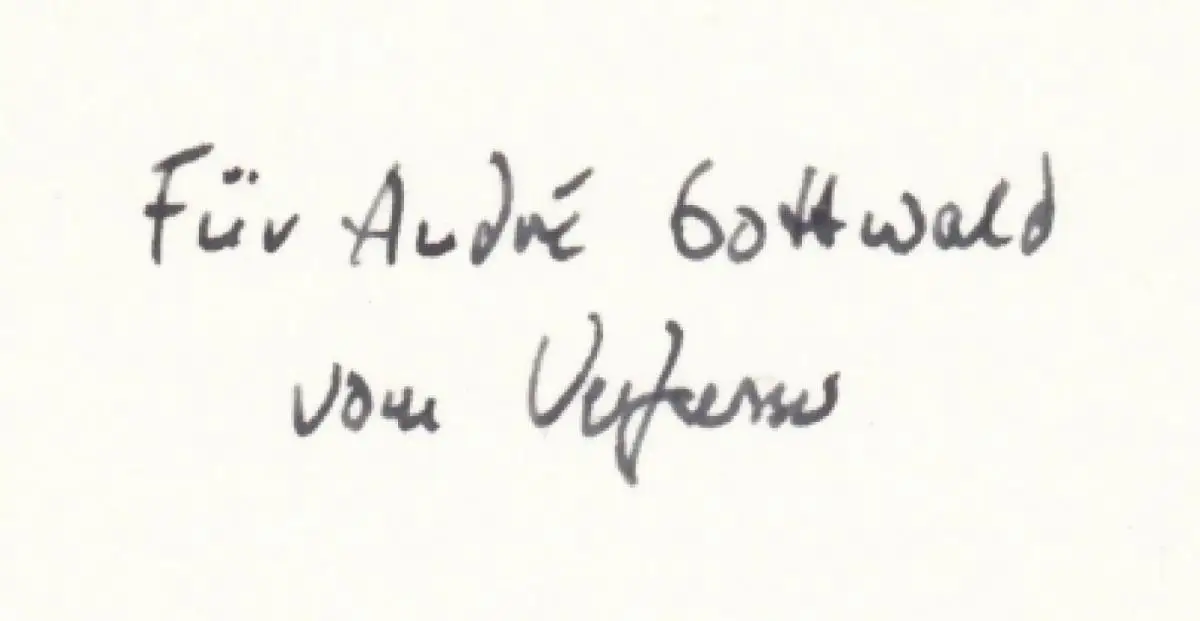 Für André Gottwald
vom Verfasser